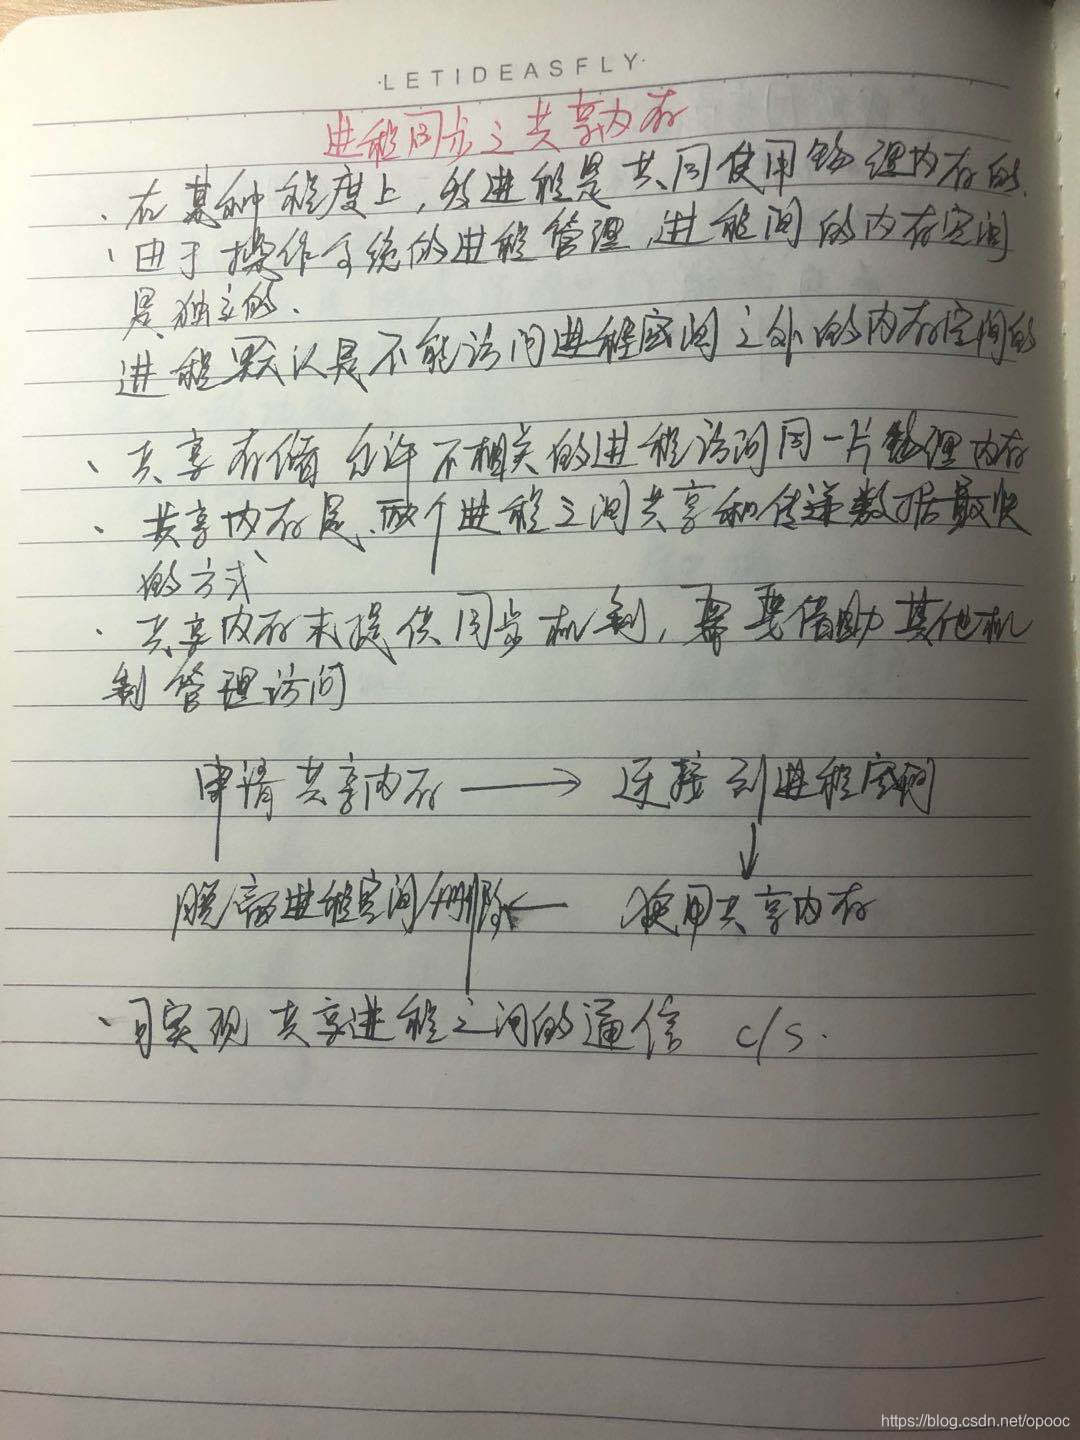 ·LETIDEASFLY·
进程同步之共享内存
、在某种程度上,多进程是共同使用物理内存的.
、由于操作系统的进程管理,进程间的内存空间
是独立的.
进程默认是不能访问进程空间之外的内存空间的
、共享存储 允许不相关的进程访问同一片物理内存
、共享内存是、两个进程之间共享和传递数据最快
的方式
、共享内存未提供同步机制,需要借助其他机
制管理访问
申请共享内存 → 连接到进程空间
脱离进程空间/删除 ← 使用共享内存
、可实现共享进程之间的通信 C/S.
https://blog.csdn.net/opooc